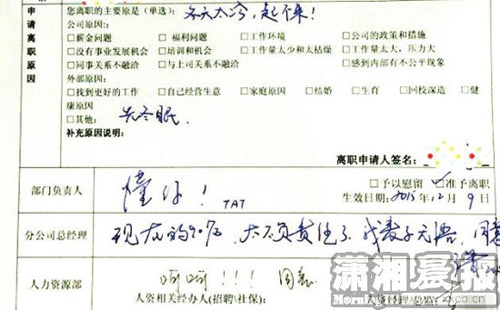 您离职的主要原是(单选): 冬天太冷，起不来!
申请离职原因
公司原因:
□薪金问题 □福利问题 □工作环境 □公司的政策和措施
□没有事业发展机会 □培训和机会 □工作量太少和太枯燥 □工作量太大，压力大
□同事关系不融洽 □与上司关系不融洽 □感到内部有不公平现象
外部原因:
□找到更好的工作 □自己经营生意 □家庭原因 □结婚 □生育 □回校深造 □健
康原因
□其他: 去冬眠.
补充原因说明:
离职申请人签名:
部门负责人 懂你! TAT
□予以慰留 ☑准予离职
生效日期: 2015年12月9日
分公司总经理 现在的90后，太不负责任了，我表示无语，同意
人力资源部 呵呵!!! 同意
人资相关经办人(招聘\社保): 人资经理/总监:
潇湘晨报